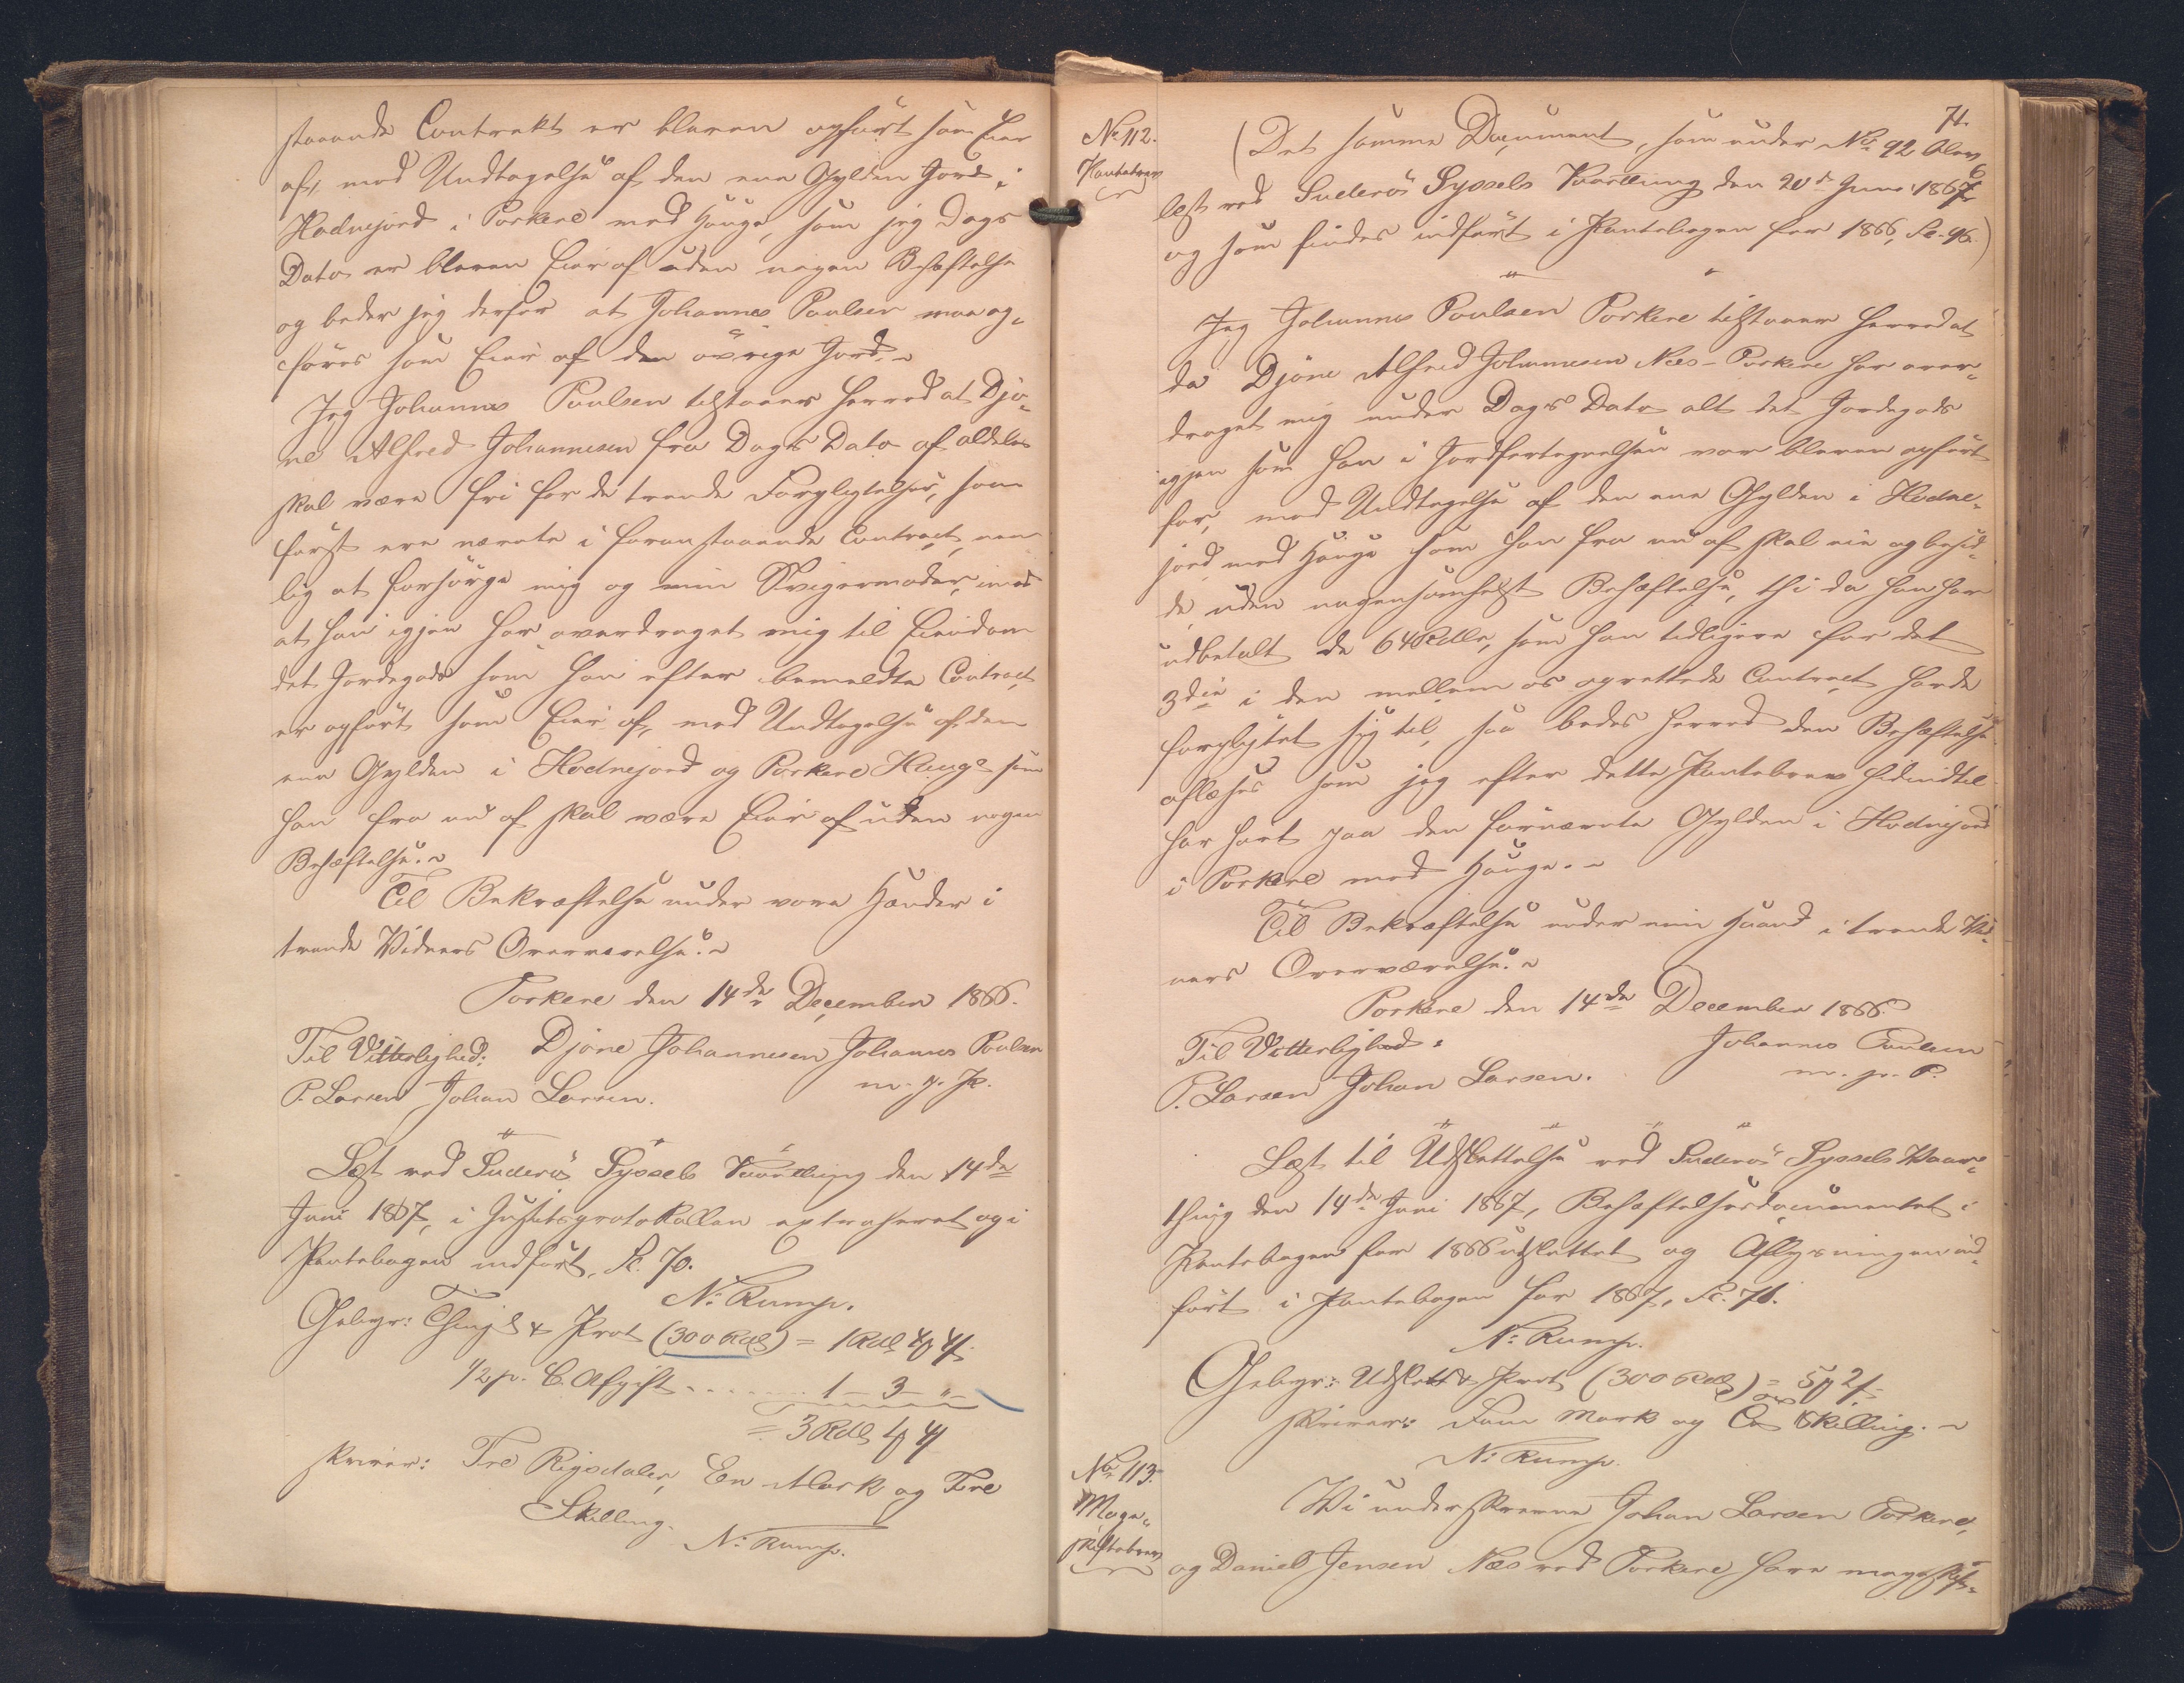 staaende Contrakt er bleven opført som Eier
af, med Undtagelse af den ene Gylden Jord i
Hodnejord i Porkere med Hauge, som jeg Dags
Dato er bleven Eier af uden nogen Behæftelse
og beder jeg derfor at Johannes Poulsen maa op-
føres som Eier af den øvrige Jord.
Jeg Johannes Poulsen tilstaaer herved at Djo-
ne Alfred Johannesen fra Dags Dato af aldeles
skal være fri for de tvende Forpligtelser, som
først ere nævnte i foranstaaende Contract, nem-
lig at forsørge mig og min Svigermoder, imod
at han igjen har overdraget mig til Eiendom
det Jordegods som han efter bemeldte Contract
er opført som Eier af, med Undtagelse af den
ene Gylden i Hodnejord og Porkere Hauge som
han fra nu af skal være Eier af uden nogen
Behæftelse.
Til Bekræftelse under vore Hænder i
tvende Vidners Overværelse.
Porkere den 14de December 1866.
Til Vitterlighed: Djone Johannesen Johannes Poulsen
P. Larsen Johan Larsen. m. p. P.
Læst ved Suderø Syssels Vaarthing den 14de
Juni 1867, i Justitsprotokollen extraheret og i
Pantebogen indført, Fc. 70.
N: Rump.
Gebyr: Thingl & Prot (300 Rdl) = 1 Rdl 4 β 4 β
1/2 p. C. Afgift . . . . . . 1 - 3 - "-
= 3 Rdl 1 β 4 β
skriver: Tre Rigsdaler, En Mark og Fire
Skilling.
N: Rump.
71.
No 112.
Pantebrev
(Det samme Document, som under No 92 blev
læst ved Suderø Syssels Vaarthing den 20de Juni 1866
og som findes indført i Pantebogen for 1866, Fc. 96.)
Jeg Johannes Poulsen Porkere tilstaaer herved at
da Djone Alfred Johannesen Næs-Porkere har over-
draget mig under Dags Dato alt det Jordegods
igjen som han i Jordfortegnelsen var bleven opført
for, med Undtagelse af den ene Gylden i Hodne-
jord med Hauge som han fra nu af skal eie og besid-
de uden nogensomhelst Behæftelse, thi da han har
udbetalt de 64 Rdlr, som han tidligere for det
3die i den mellem os oprettede Contract havde
forpligtet sig til, saa bedes herved den Behæftelse
aflæses som jeg efter dette Pantebrev hidindtil
har havt paa den fornævnte Gylden i Hodnejord
i Porkere med Hauge.
Til Bekræftelse under min Haand i tvende Vid-
ners Overværelse.
Porkere den 14de December 1866.
Til Vitterlighed: Johannes Poulsen
P. Larsen Johan Larsen. m. p. P.
Læst til Udslettelse ved Suderø Syssels Vaar-
thing den 14de Juni 1867, Behæftelsesdocumentet i
Pantebogen for 1866 udslettet og Aflysningen ind-
ført i Pantebogen for 1867, Fc. 71.
N: Rump.
Gebyr: Udslett & Prot (300 Rdl) = 5 β 2 β
skriver: Fem Mark og To Skilling.
N: Rump.
No 113.
Mage-
skiftebrev
Vi underskrevne Johan Larsen Porkere,
og Daniel Jensen Næs ved Porkere have mageskif-